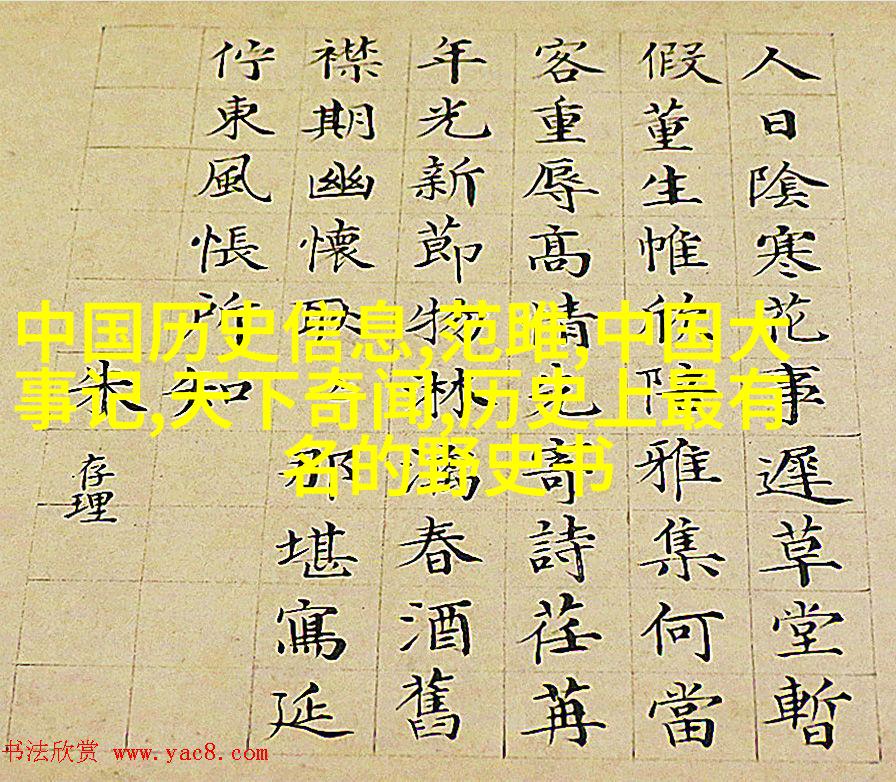 人日陰寒花事遲草堂暫
假董生帷後陪雅集何當
客重辱高情先寄詩荏苒
年光新節物淋漓春酒舊
襟期幽懷那堪寫延
佇東風悵所知
朱存理
中国历史信息,范雎,中国大
事记,天下奇闻,历史上最有
名的野史书
书法欣赏 www.yac8.com